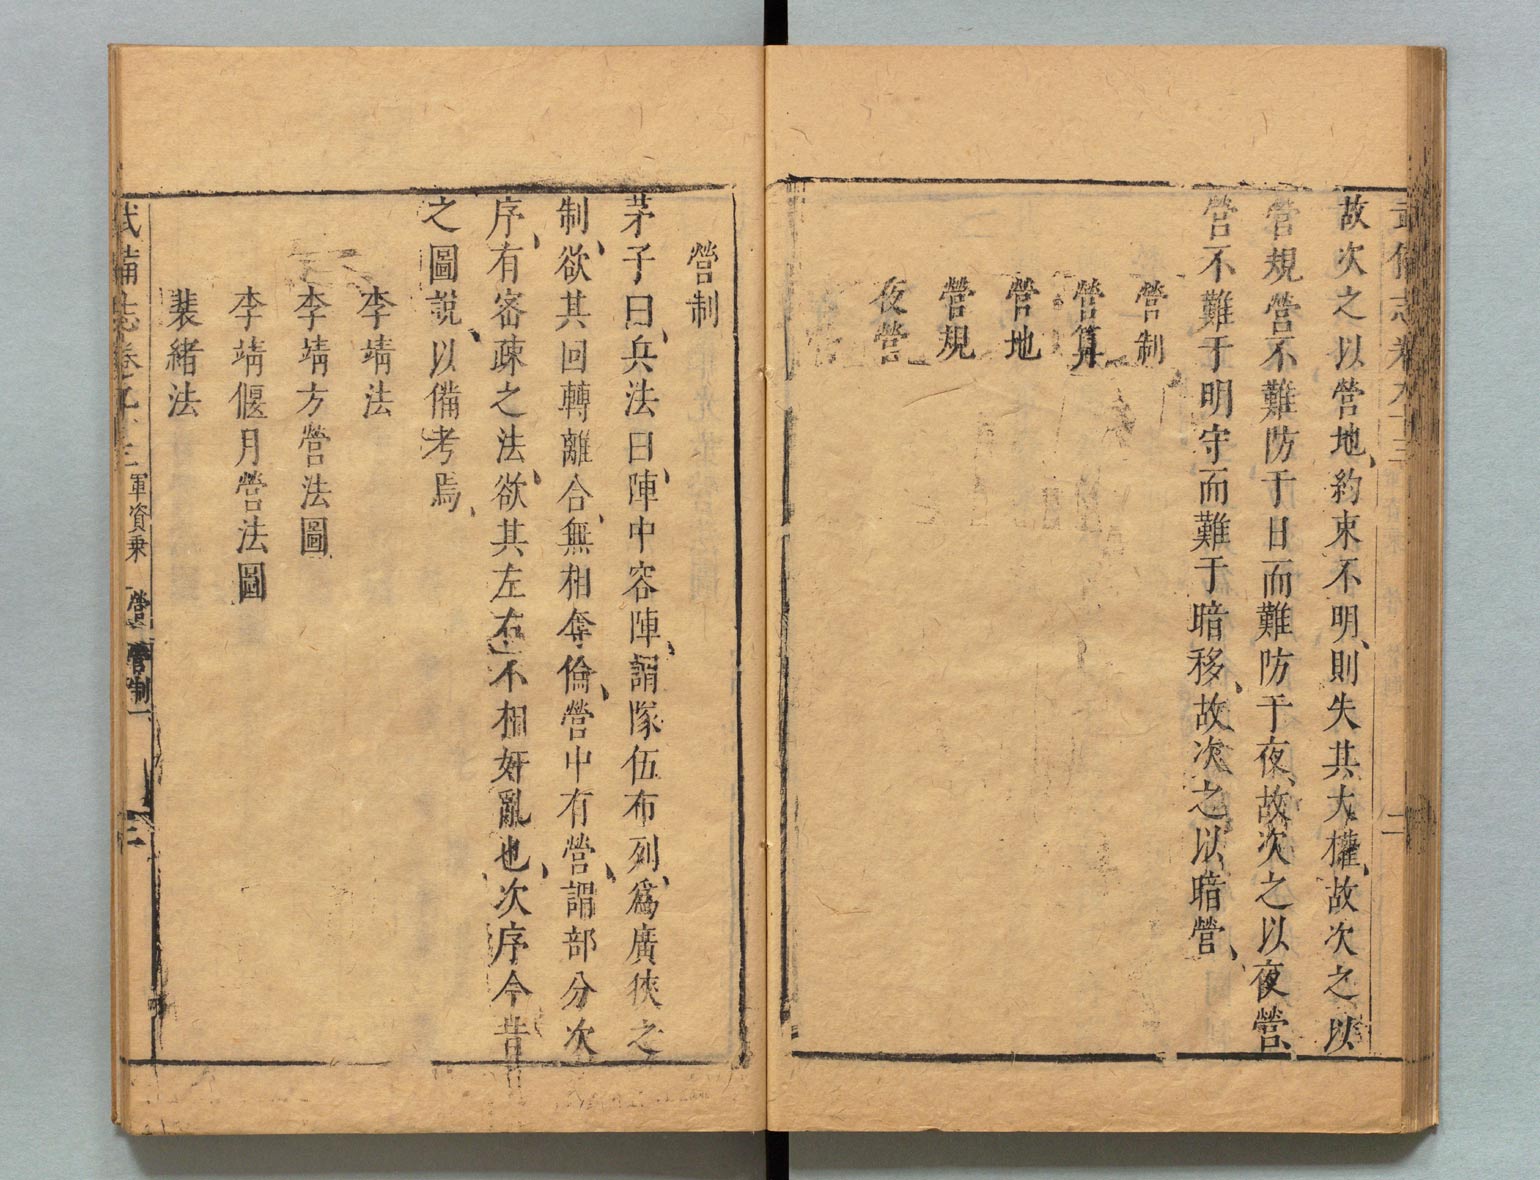 故次之以營地、約束不明、則失其大權、故次之以
營規、營不難防于日而難防于夜、故次之以夜營、
營不難于明守而難于暗移、故次之以暗營、
營制
營算
營地
營規
夜營
營制
茅子曰、兵法曰、陣中容陣、謂隊伍布列、爲廣狹之
制、欲其回轉離合、無相奪倫、營中有營、謂部分次
序、有審疎之法、欲其左右不相奸亂也、次序今昔
之圖說、以備考焉、
李靖法
李靖方營法圖
李靖偃月營法圖
裴緒法
武備志卷九十三 軍資乘 營 營制一 三